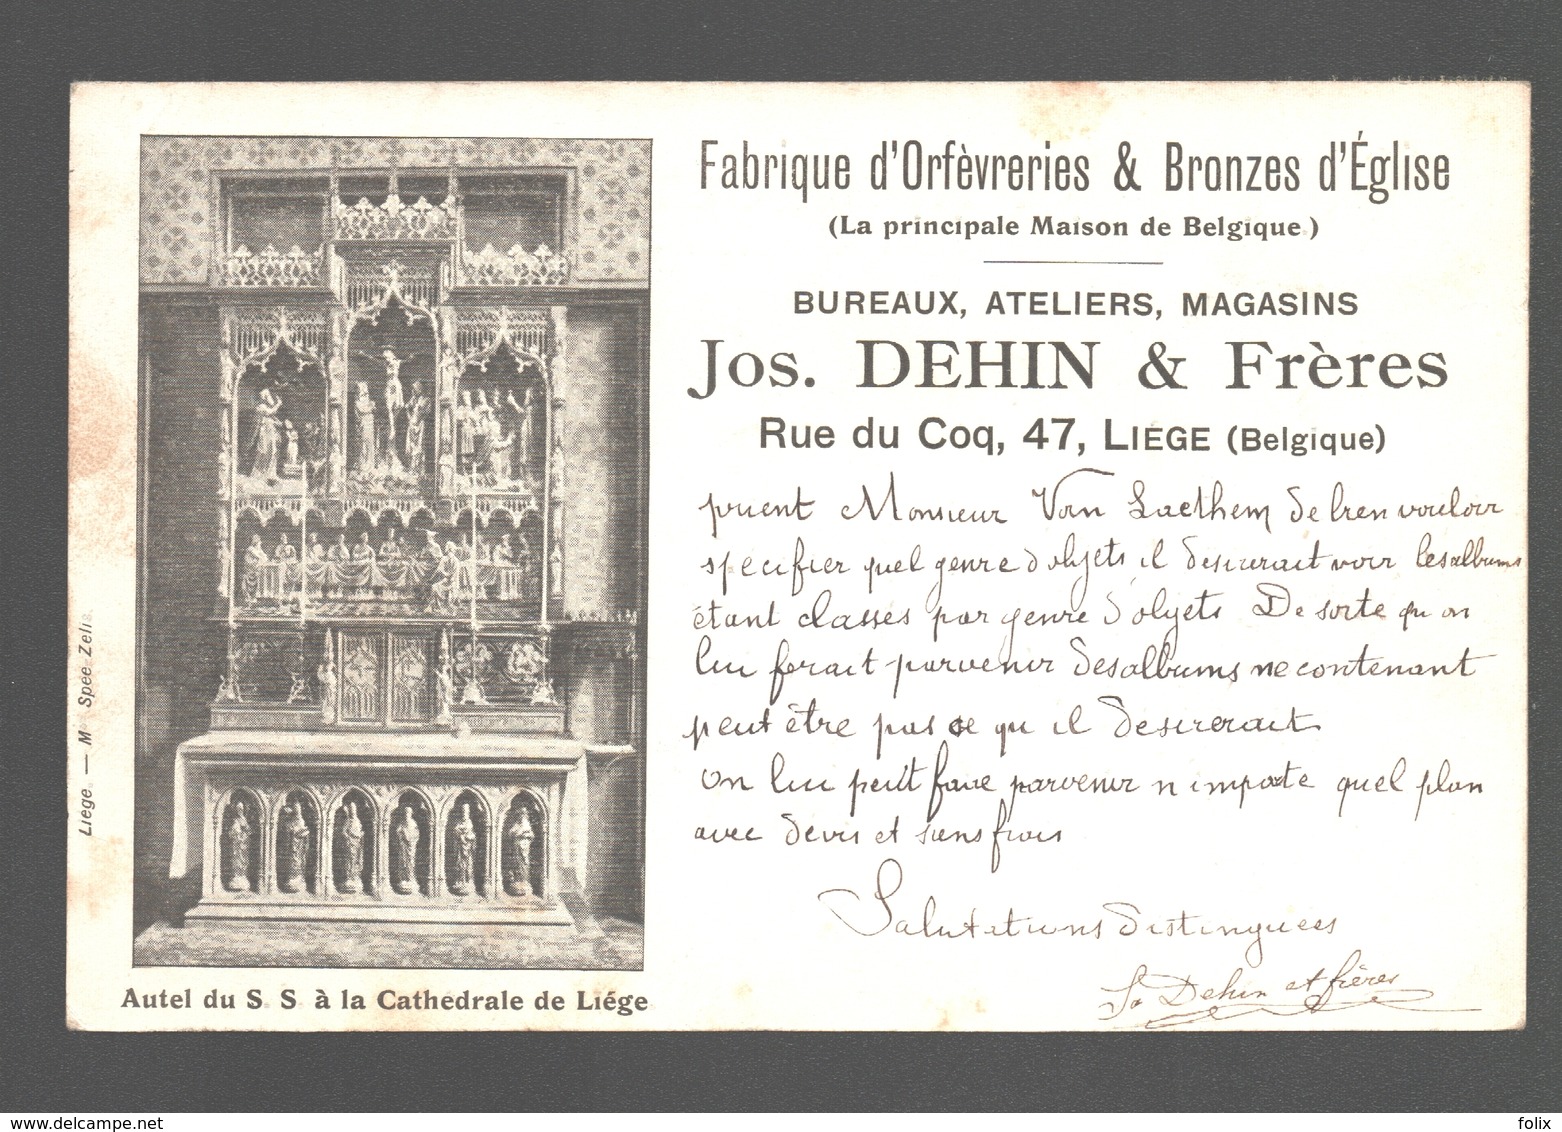 Fabrique d'Orfèvreries & Bronzes d'Église
(La principale Maison de Belgique.)
BUREAUX, ATELIERS, MAGASINS
Jos. DEHIN & Frères
Rue du Coq, 47, LIÉGE (Belgique)
prient Monsieur Van Laethem de bien vouloir
spécifier quel genre d objets il desirerait voir les albums
étant classés par genre d'objets De sorte qu on
lui ferait parvenir des albums ne contenant
peut être pas ce qu il desirerait
on lui peut faire parvenir n importe quel plan
avec devis et sans frais
Salutations distinguées
Dehin et frères
Liége. — Mᵉ Spée-Zelis.
Autel du S. S. à la Cathédrale de Liége
folix